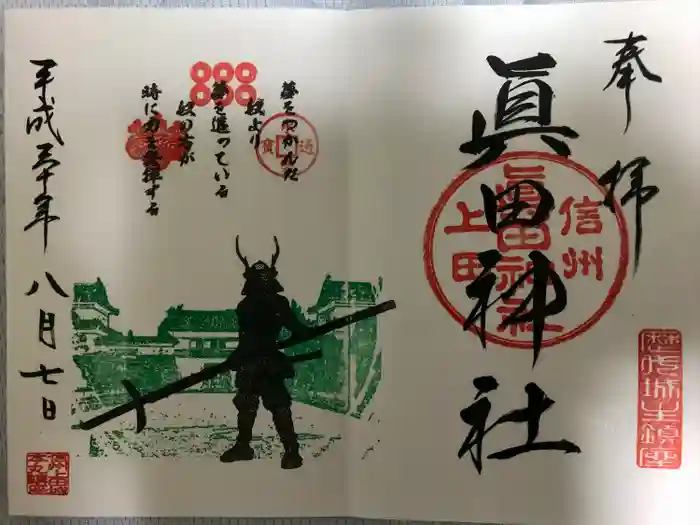 奉拝
眞田神社
信州
眞田神社
上田
歴代城主鎮座
夢をつかんだ
奴より
夢を追っている
奴の方が
時に力を発揮する
通寳
平成三十年
八月七日